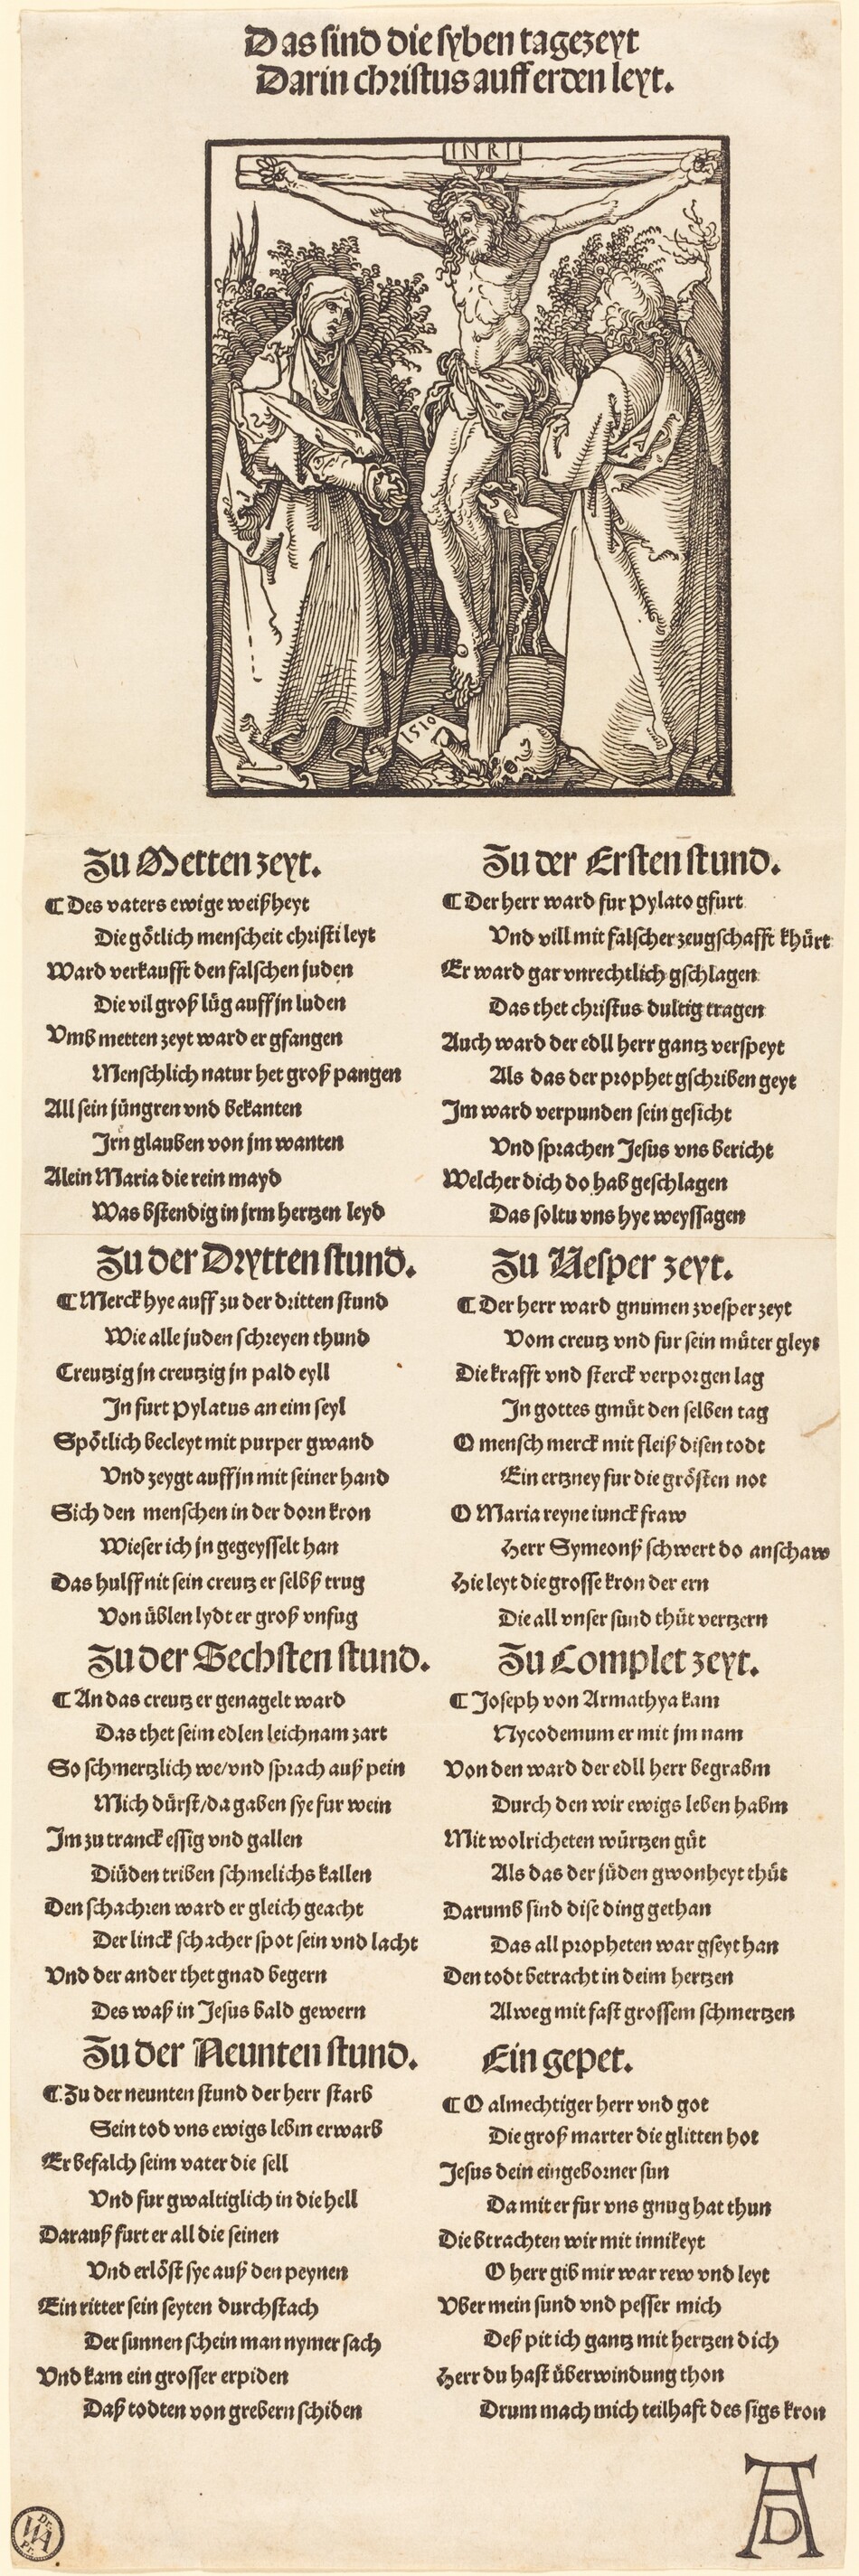 Das sind die syben tagezeyt
Darin christus auff erden leyt.
INRI
1510
Zu Metten zeyt.
¶ Des vaters ewige weißheyt
Die götlich menscheit christi leyt
Ward verkaufft den falschen juden
Die vil groß lüg auff jn luden
Vmb metten zeyt ward er gfangen
Menschlich natur het groß pangen
All sein jüngren vnd bekanten
Irn glauben von jm wanten
Alein Maria die rein mayd
Was bstendig in jrm hertzen leyd
Zu der Ersten stund.
¶ Der herr ward fur Pylato gfurt
Vnd vill mit falscher zeugschafft khürt
Er ward gar vnrechtlich gschlagen
Das thet christus dultig tragen
Auch ward der edll herr gantz verspeyt
Als das der prophet gschriben geyt
Im ward verpunden sein gesicht
Vnd sprachen Jesus vns bericht
Welcher dich do hab geschlagen
Das soltu vns hye weyssagen
Zu der Drytten stund.
¶ Merck hye auff zu der dritten stund
Wie alle juden schreyen thund
Creutzig jn creutzig jn pald eyll
In furt Pylatus an eim seyl
Spötlich becleyt mit purper gwand
Vnd zeygt auff jn mit seiner hand
Sich den menschen in der dorn kron
Wie ser ich jn gegeysselt han
Das hulff nit sein creutz er selbß trug
Von üblen lydt er groß vnfug
Zu Vesper zeyt.
¶ Der herr ward gnumen zvesper zeyt
Vom creutz vnd fur sein müter gleyt
Die krafft vnd sterck verporgen lag
In gottes gmüt den selben tag
O mensch merck mit fleiß disen todt
Ein ertzney fur die grösten not
O Maria reyne iunckfraw
Herr Symeonß schwert do anschaw
Hie leyt die grosse kron der ern
Die all vnser sund thüt vertzern
Zu der Sechsten stund.
¶ An das creutz er genagelt ward
Das thet seim edlen leichnam zart
So schmertzlich we/vnd sprach auß pein
Mich dürst/da gaben sye fur wein
Im zu tranck essig vnd gallen
Diüden triben schmelichs kallen
Den schachren ward er gleich geacht
Der linck schacher spot sein vnd lacht
Vnd der ander thet gnad begern
Des waß in Jesus bald gewern
Zu Complet zeyt.
¶ Joseph von Armathya kam
Nycodemum er mit jm nam
Von den ward der edll herr begrabm
Durch den wir ewigs leben habm
Mit wolricheten würtzen güt
Als das der jüden gwonheyt thüt
Darumb sind dise ding gethan
Das all propheten war gseyt han
Den todt betracht in deim hertzen
Alweg mit fast grossem schmertzen
Zu der Neunten stund.
¶ Zu der neunten stund der herr starb
Sein tod vns ewigs lebm erwarb
Er befalch seim vater die sell
Vnd fur gwaltiglich in die hell
Darauß furt er all die seinen
Vnd erlöst sye auß den peynen
Ein ritter sein seyten durchstach
Der sunnen schein man nymer sach
Vnd kam ein grosser erpiden
Daß todten von grebern schiden
Ein gepet.
¶ O almechtiger herr vnd got
Die groß marter die glitten hot
Jesus dein eingeborner sun
Da mit er fur vns gnug hat thun
Die btrachten wir mit innikeyt
O herr gib mir war rew vnd leyt
Vber mein sund vnd pesser mich
Deß pit ich gantz mit hertzen dich
Herr du hast überwindung thon
Drum mach mich teilhaft des sigs kron
AD